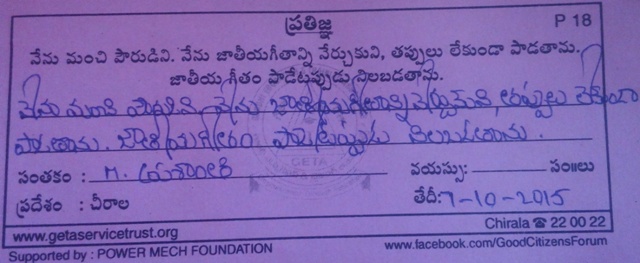 ప్రతిజ్ఞ P 18
నేను మంచి పౌరుడిని. నేను జాతీయగీతాన్ని నేర్చుకుని, తప్పులు లేకుండా పాడతాను.
జాతీయ గీతం పాడేటప్పుడు నిలబడతాను.
నేను మంచి పౌరుడిని. నేను జాతీయగీతాన్ని నేర్చుకుని, తప్పులు లేకుండా
పాడతాను. జాతీయగీతం పాడేటప్పుడు నిలబడతాను.
సంతకం : M. వయస్సు: సం॥లు
ప్రదేశం : చీరాల తేదీ: 7-10-2015
www.getaservicetrust.org Chirala ☎ 22 00 22
Supported by : POWER MECH FOUNDATION www.facebook.com/GoodCitizensForum